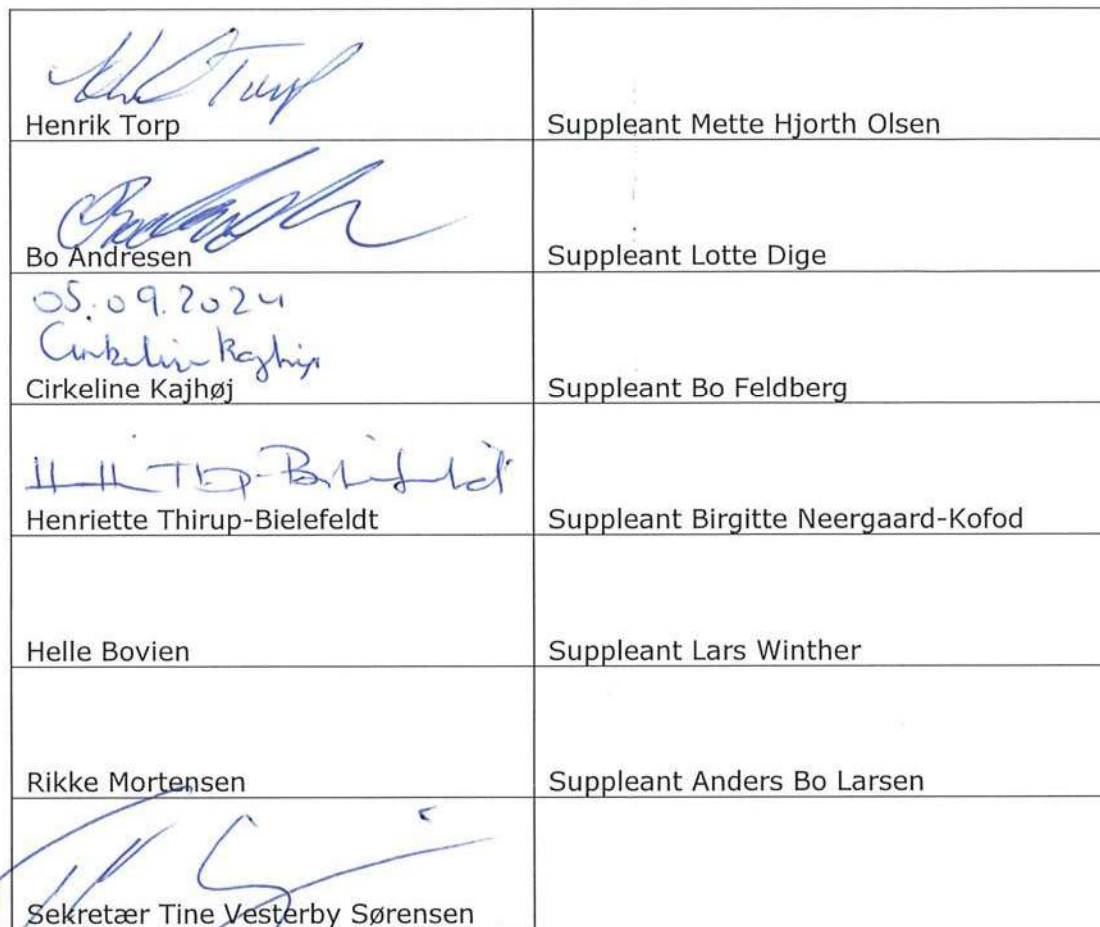 Henrik Torp
Suppleant Mette Hjorth Olsen
Bo Andresen
Suppleant Lotte Dige
05.09.2024
Cirkeline Kajhøj
Cirkeline Kajhøj
Suppleant Bo Feldberg
Henriette Thirup-Bielefeldt
Suppleant Birgitte Neergaard-Kofod
Helle Bovien
Suppleant Lars Winther
Rikke Mortensen
Suppleant Anders Bo Larsen
Sekretær Tine Vesterby Sørensen